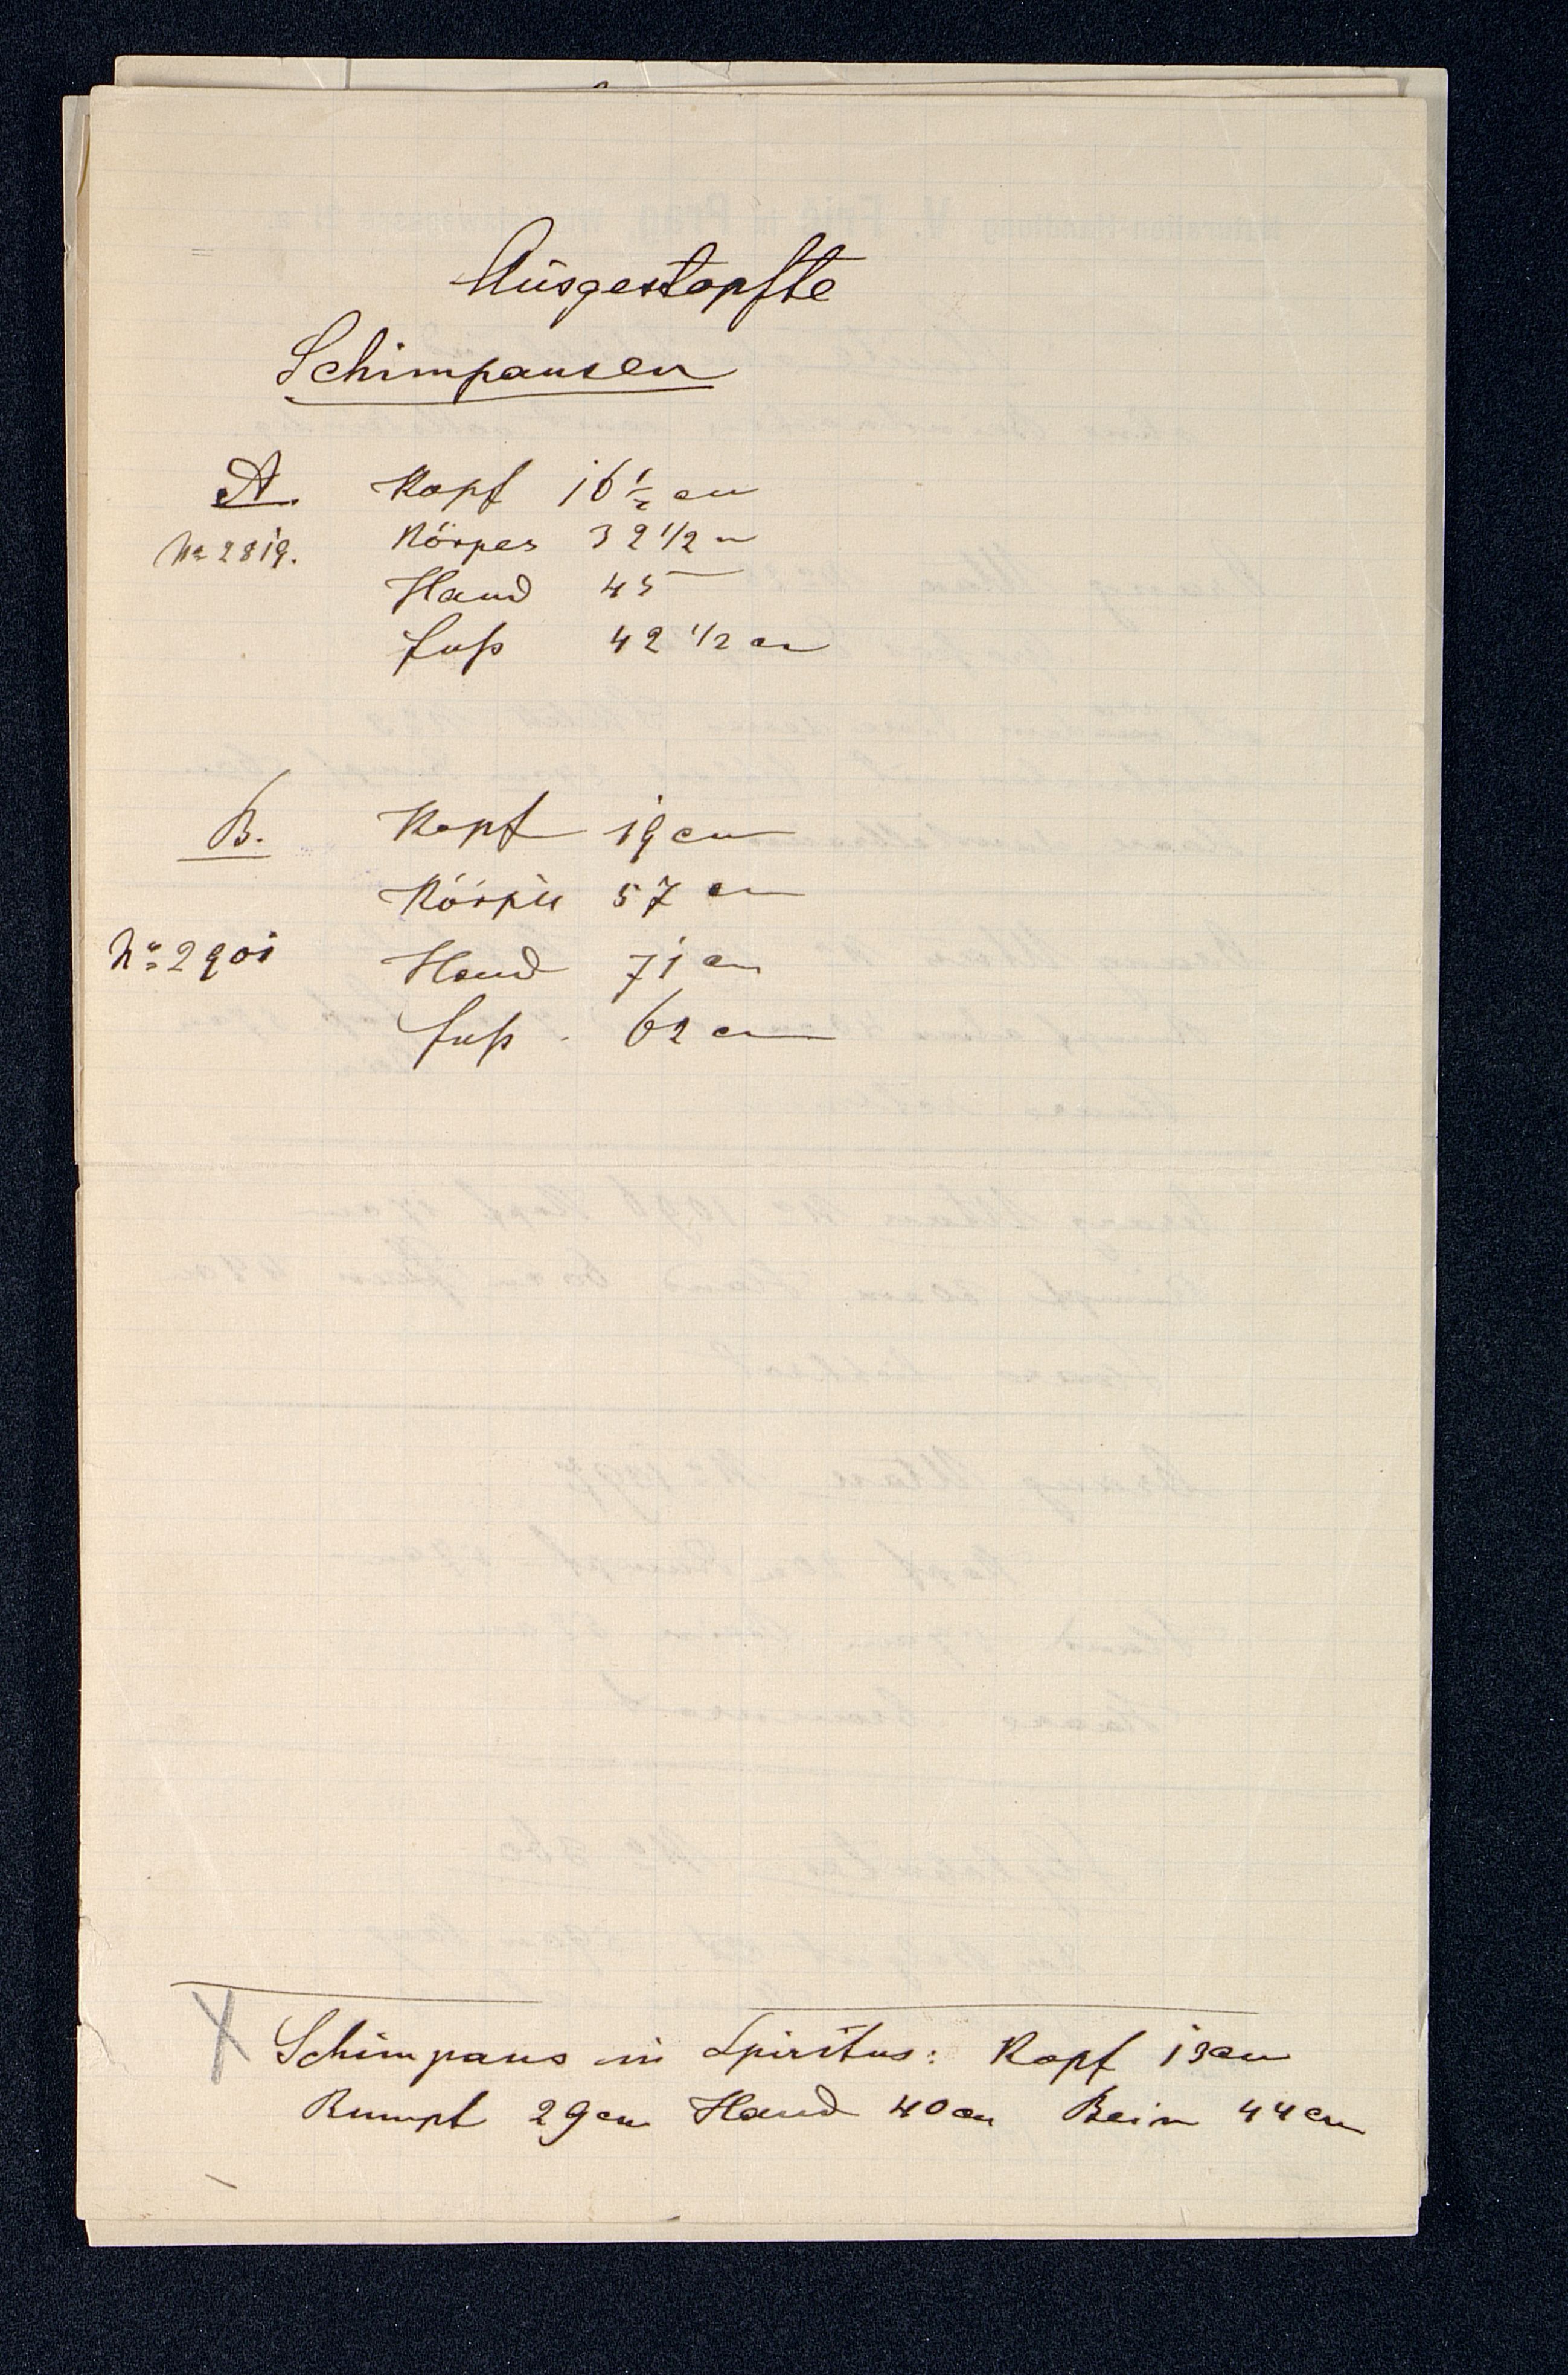 Ausgestopfte
Schimpansen
A. Kopf 16 1/2 cm
No 2819. Körper 32 1/2 cm
Hand 45
fuß 42 1/2 cm
B. Kopf 19 cm
Körper 57 cm
No 2901 Hand 71 cm
fuß 62 cm
X Schimpans in Spiritus: Kopf 13 cm
Rumpf 29 cm Hand 40 cm Bein 44 cm